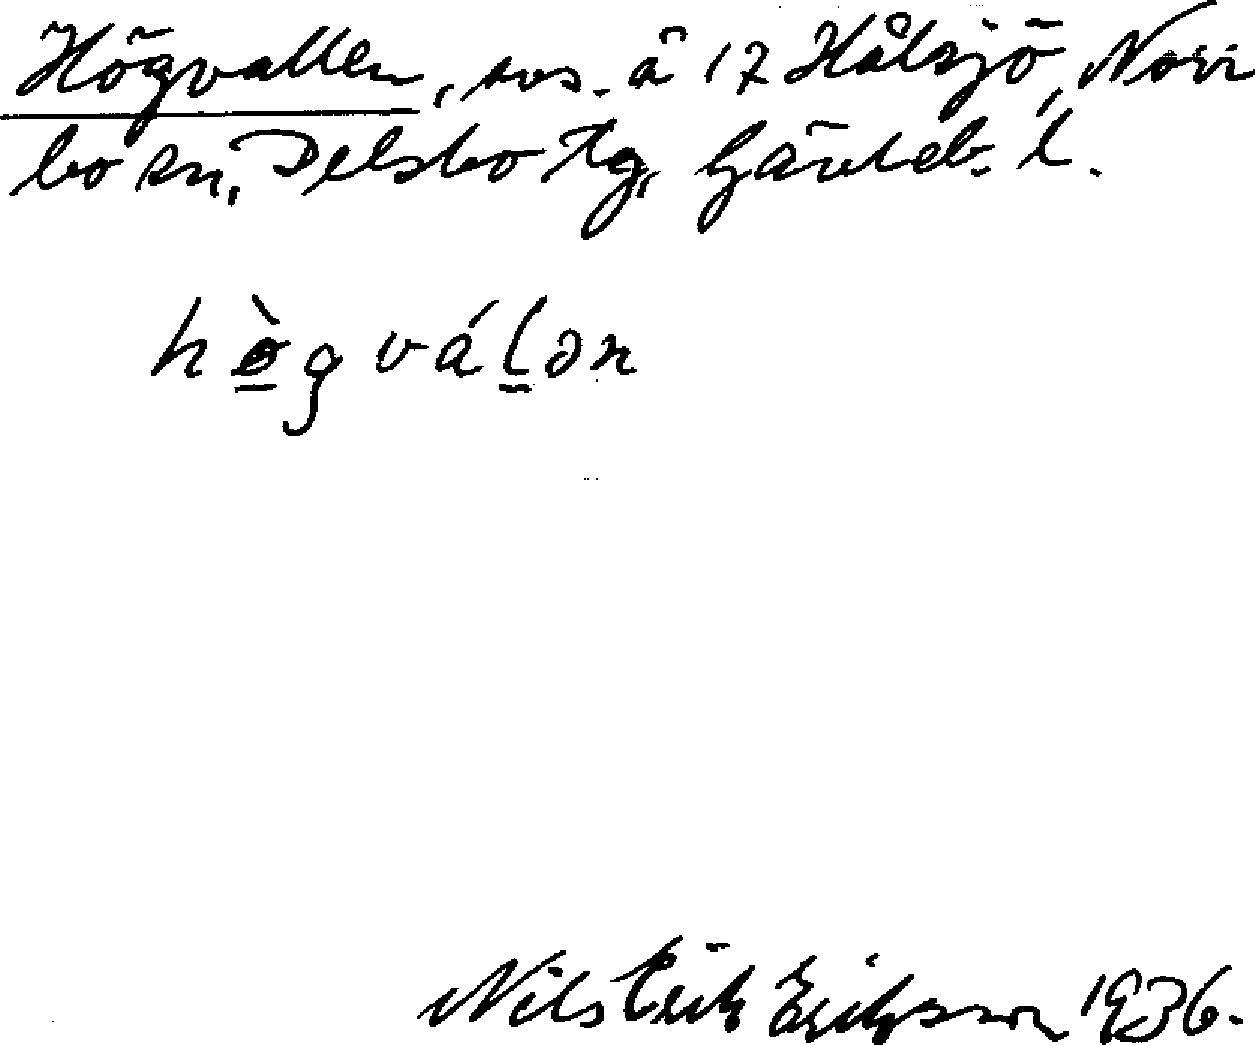 Högvallen, avs. å 1⁷ Hålsjö, Norr
bo sn, Delsbo tg, Gävleb. l.
hø̀gválən
Nils Erik Eriksson 1936.